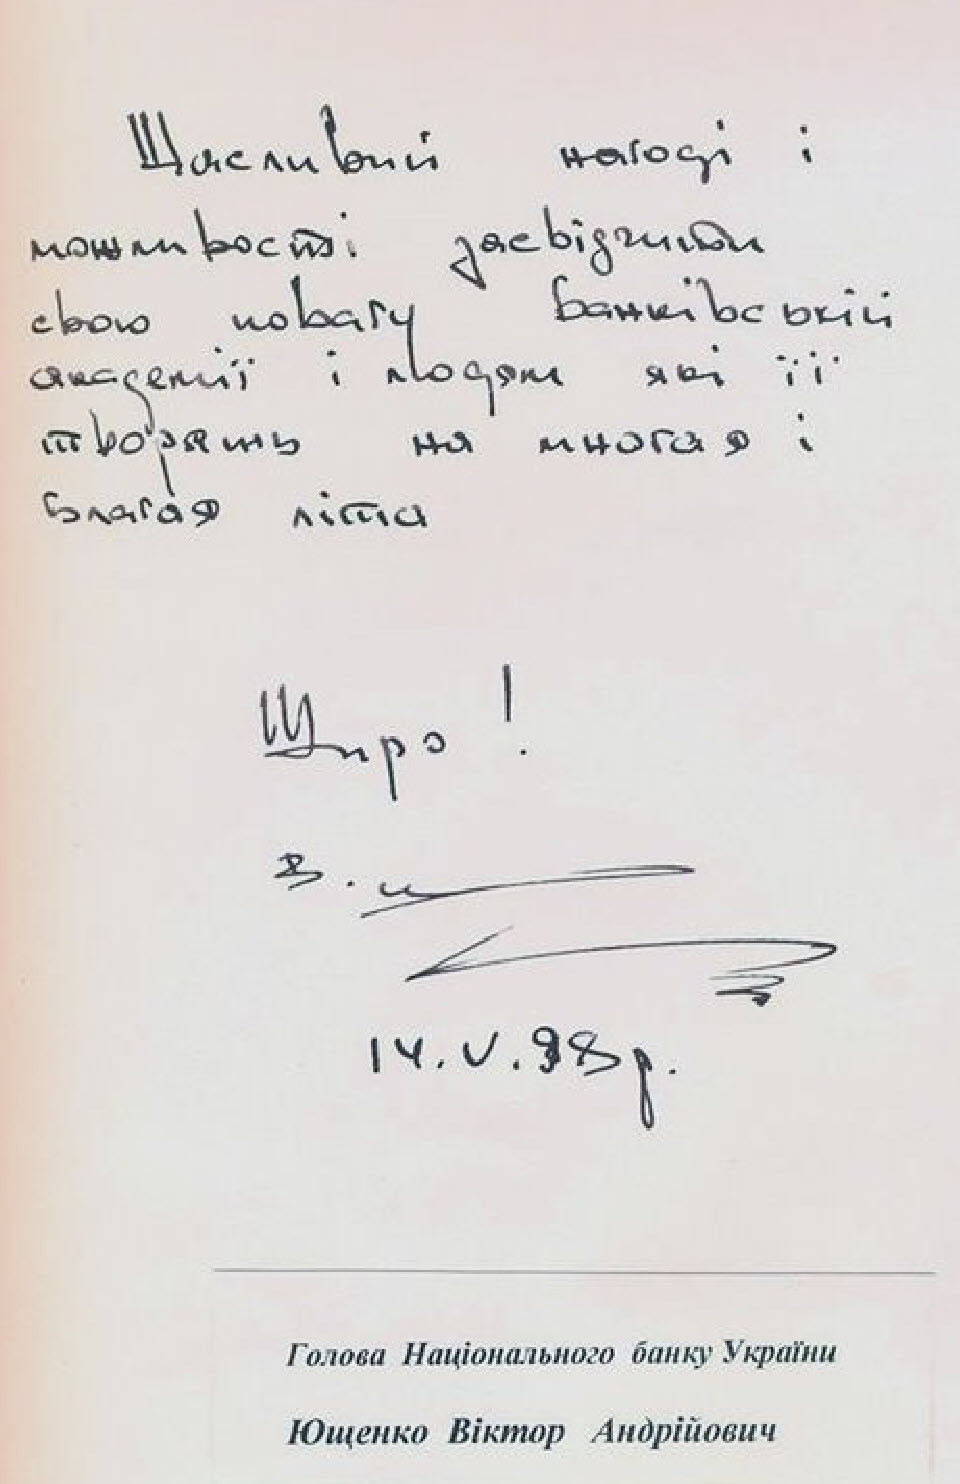 Щасливий нагоді і
можливості засвідчити
свою повагу Банківській
академії і людям які її
творять на многая і
благая літа
Щиро!
В.
14.V.98р.
Голова Національного банку України
Ющенко Віктор Андрійович